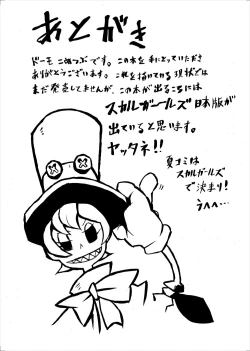 ドーモ 二粒っぷです。この本を手にとっていただき
ありがとうございます。これを描いている現状では
まだ発売してませんが、この本が出るころには
スカルガールズ日本版が
出ていると思います。
ヤッタネ!!
夏コミは
スカルガールズ
で決まり!
うへへ…